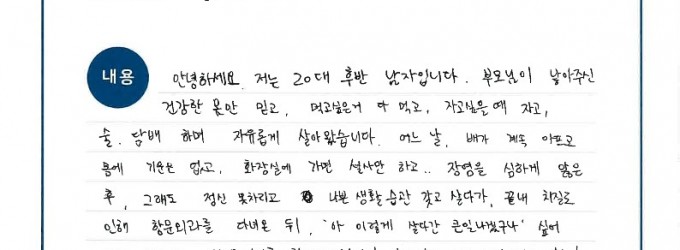 내용
안녕하세요. 저는 20대 후반 남자입니다. 부모님이 낳아주신
건강한 몸만 믿고, 먹고싶은거 다 먹고, 자고싶을 때 자고,
술. 담배 하며 자유롭게 살아왔습니다. 어느 날, 배가 계속 아프고
몸에 기운은 없고, 화장실에 가면 설사만 하고.. 장염을 심하게 앓은
후, 그래도 정신 못차리고 나쁜 생활 습관 갖고 살다가, 끝내 치질로
인해 항문외과를 다녀온 뒤, '아 이렇게 살다간 큰일나겠구나' 싶어